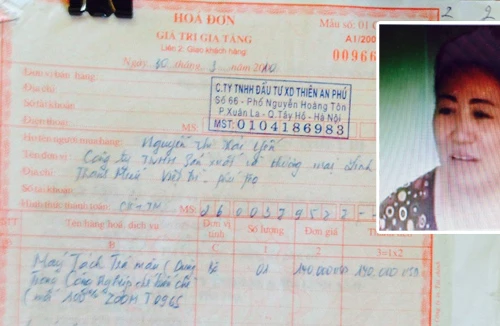 HOÁ ĐƠN
GIÁ TRỊ GIA TĂNG
Liên 2: Giao khách hàng
Mẫu số: 01
A1/200
00966
Ngày 30 tháng 3 năm 2010
Đơn vị bán hàng
Địa chỉ
Số tài khoản
Điện thoại
MS:
C.TY TNHH ĐẦU TƯ XD THIÊN AN PHÚ
Số 66 - Phố Nguyễn Hoàng Tôn
P.Xuân La - Q.Tây Hồ - Hà Nội
MST: 0104186983
Họ tên người mua hàng: Nguyễn Thị Hải Yến
Tên đơn vị: Công ty TNHH Sản xuất và thương mại Linh
Địa chỉ: Việt Trì - Phú Thọ
Số tài khoản
Hình thức thanh toán: CK+TM MS: 2600379522
STT Tên hàng hoá, dịch vụ Đơn vị tính Số lượng Đơn giá Thành tiền
B C 1 2 3=1x2
Máy Tách Trà màu (Dùng Bộ 01 140.000.000 140.000.000
Trong Công Nghiệp chế biến chè